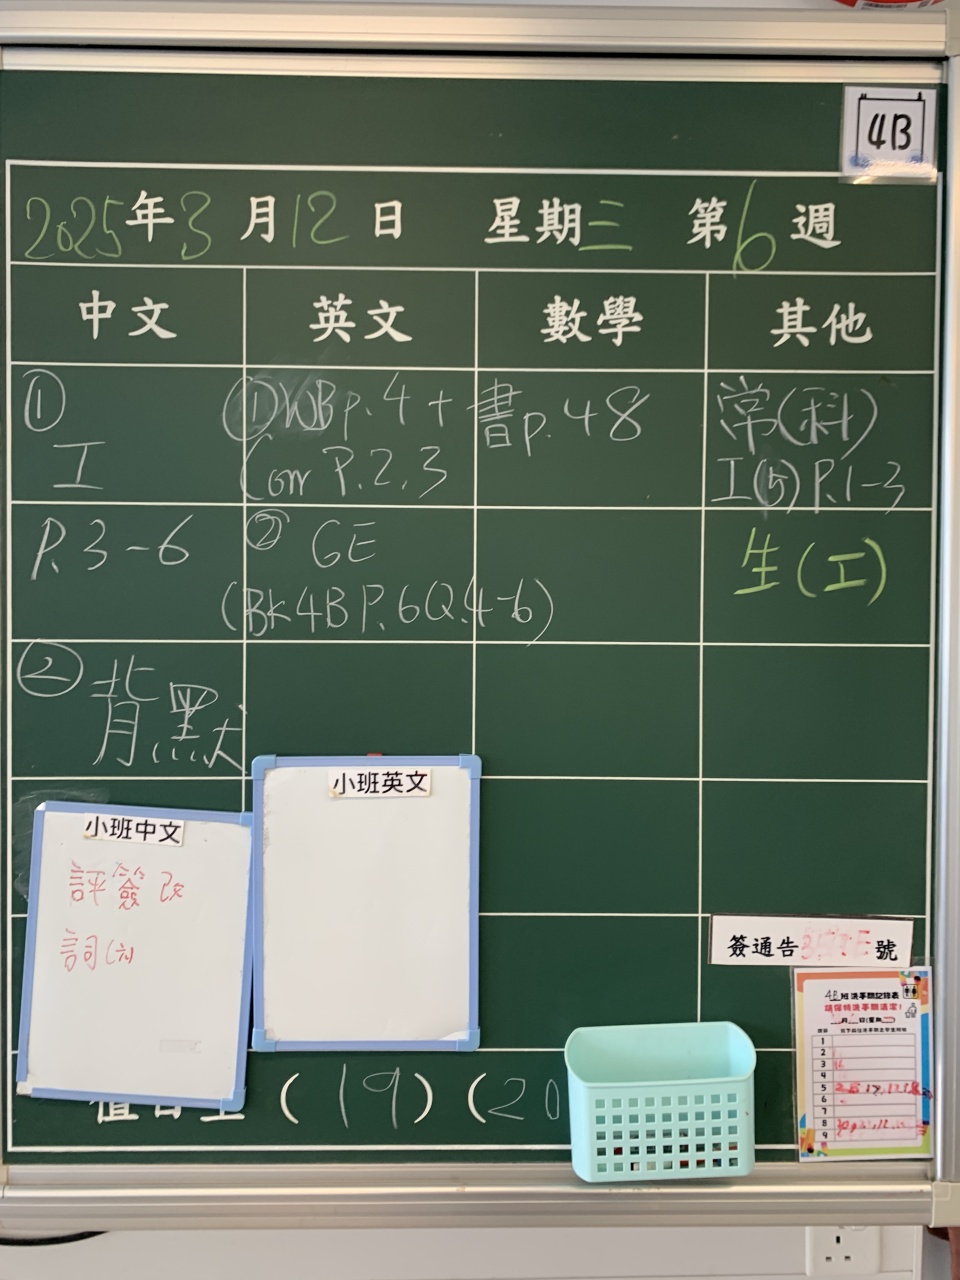 4B
2025年3月12日 星期三 第6週
中文 英文 數學 其他
① ①WBp.4+ 書p.48 常(科)
工 Corr P.2,3 工(5) P.1-3
P.3-6 ② GE 生(工)
(BK4B P.6Q.4-6)
② 背默
小班中文
評簽改
詞(六)
小班英文
簽通告 號
4B班洗手間記錄表
請保持洗手間清潔!
月 日(星期 )
1
2
3
4
5
6
7
8
9
(19) (20